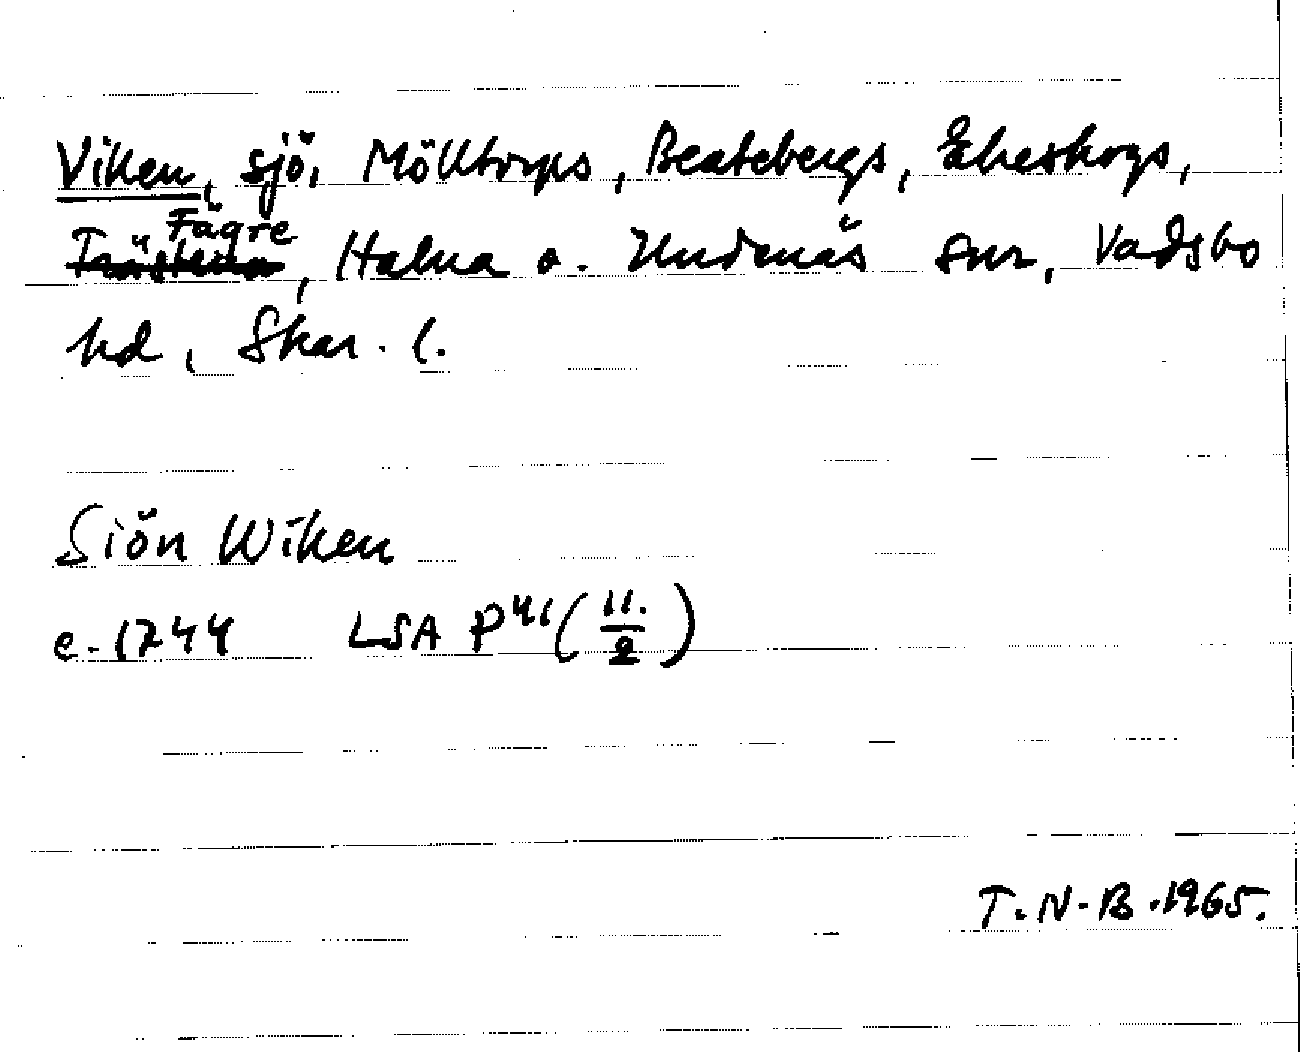 Viken, sjö, Mölltorps, Beatebergs, Ekeskogs,
Fägre
Trästena, Halna o. Undenäs snr, Vadsbo
hd, Skar. l.
Siön Wiken
c. 1744 LSA P41 (11./2)
T.N.B. 1965.